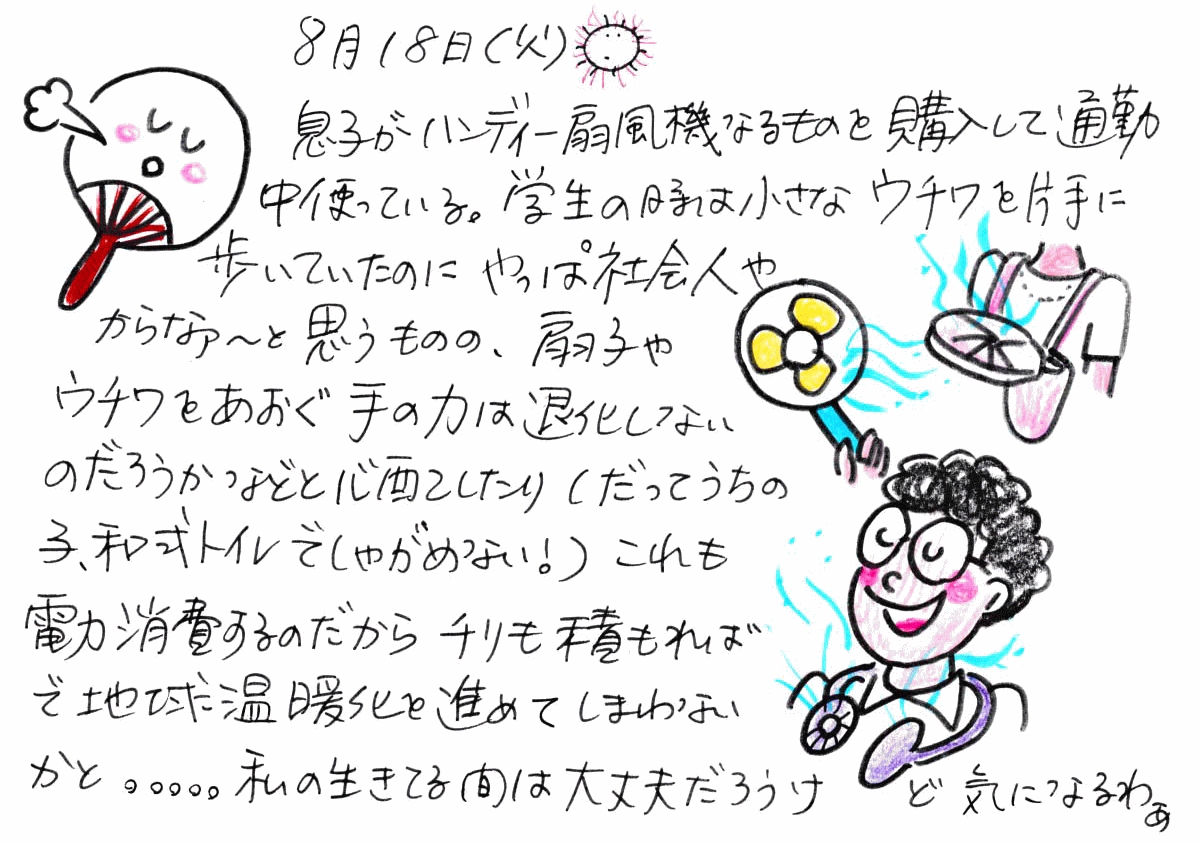 8月18日(火)
息子がハンディー扇風機なるものを購入して通勤
中使っている。学生の時は小さなウチワを片手に
歩いていたのにやっぱ社会人や
からなァ〜と思うものの、扇子や
ウチワをあおぐ手の力は退化しない
のだろうかなどと心配したり(だってうちの
子、和式トイレでしゃがめない!)これも
電力消費するのだからチリも積もれば
で地球温暖化を進めてしまわない
かと。。。。。私の生きてる間は大丈夫だろうけど気になるわぁ